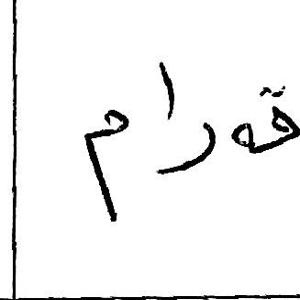 قەرام